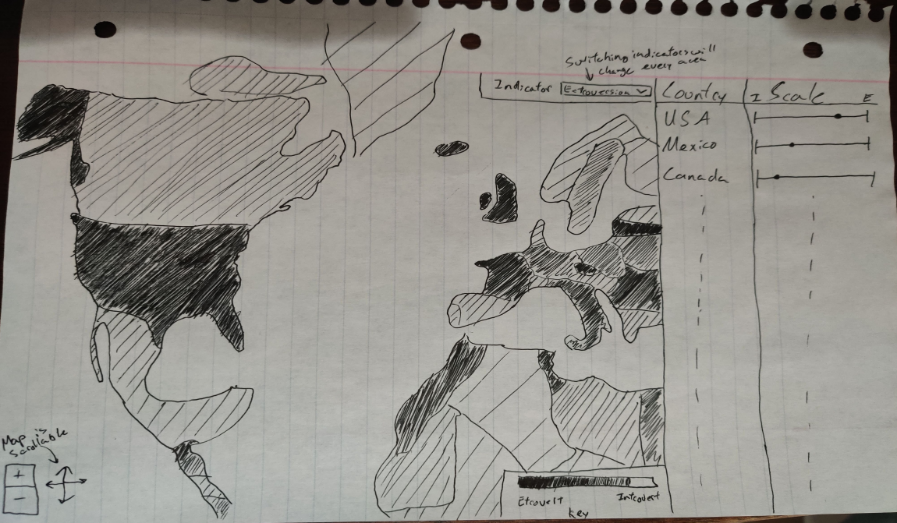 Switching indicators will
change every area
Indicator Extroversion
Country
I Scale E
USA
Mexico
Canada
Map is
scrollable
+
-
Etrovert Introvert
key